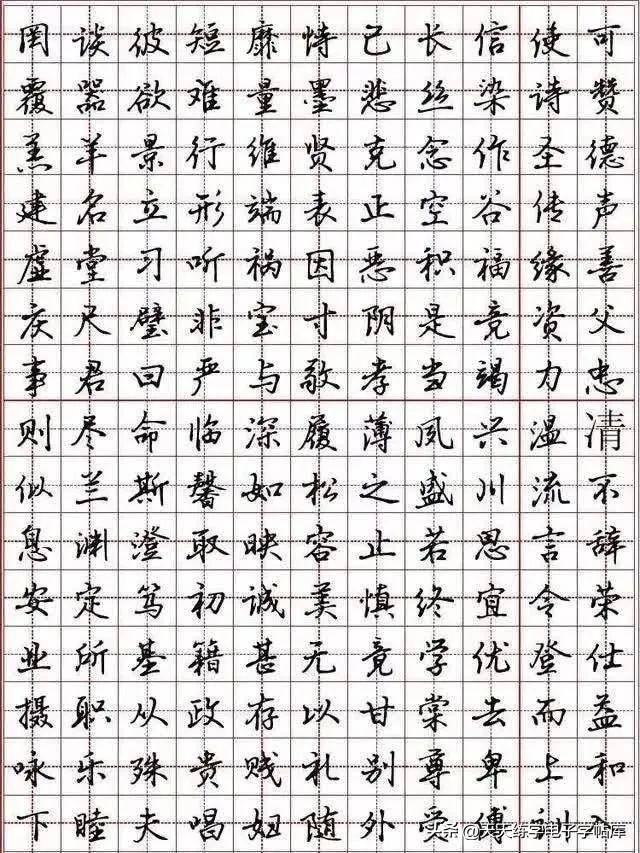 罔谈彼短靡恃己长信使可
覆器欲难量墨悲丝染诗赞
羔羊景行维贤克念作圣德
建名立形端表正空谷传声
虚堂习听祸因恶积福缘善
庆尺璧非宝寸阴是竞资父
事君曰严与敬孝当竭力忠
则尽命临深履薄夙兴温凊
似兰斯馨如松之盛川流不
息渊澄取映容止若思言辞
安定笃初诚美慎终宜令荣
业所基籍甚无竟学优登仕
摄职从政存以甘棠去而益
咏乐殊贵贱礼别尊卑上和
下睦夫唱妇随外受傅训入
头条 @天天练字电子字帖库